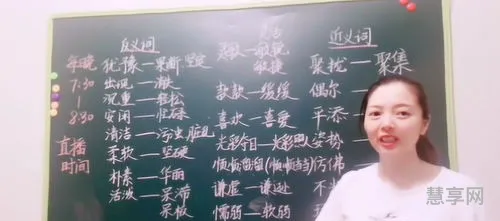 每晚
7:30
8:30
直播
时间
反义词
犹豫—果断 坚定
出现—消失
沉重—轻松
安闲—忙碌
清洁—污浊 脏
柔软—坚硬
朴素—华丽
活泼—呆滞
呆板
灵敏—敏锐
敏捷
款款—缓缓
喜欢—喜爱
光彩夺目—光彩照人
谦虚—谦逊
懦弱—软弱
近义词
聚拢—聚集
偶尔—
平添—
姿势—
仿佛
慧享网